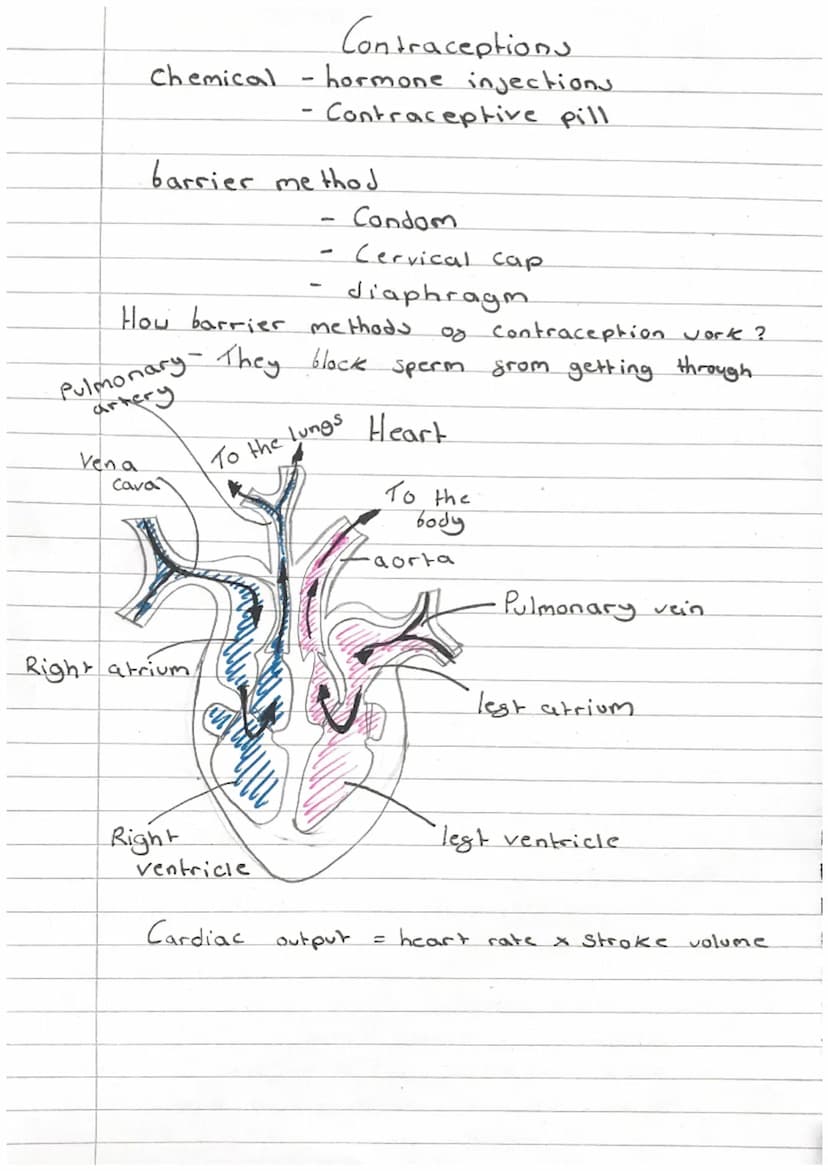 Contraceptions
Chemical - hormone injections
- Contraceptive pill
barrier method
- Condom
- Cervical cap
- diaphragm
How barrier methods of contraception work?
- They block sperm from getting through
Heart
Pulmonary
artery
To the lungs
Vena
cava
To the
body
aorta
Pulmonary vein
Right atrium
left atrium
Right
ventricle
left ventricle
Cardiac output = heart rate x stroke volume